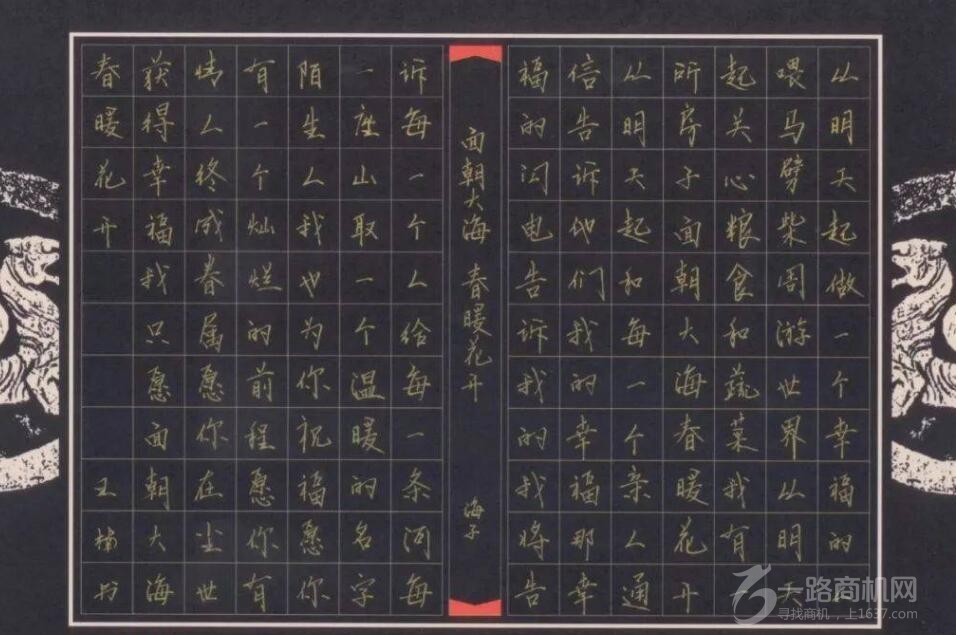 从明天起做一个幸福的人
喂马劈柴周游世界从明天
起关心粮食和蔬菜我有
所房子面朝大海春暖花开
从明天起和每一个亲人通
信告诉他们我的幸福那幸
福的闪电告诉我的我将告
面朝大海 春暖花开
海子
诉每一个人给每一条河每
一座山取一个温暖的名字
陌生人我也为你祝福愿你
有一个灿烂的前程愿你有
情人终成眷属愿你在尘世
获得幸福我只愿面朝大海
春暖花开
王楠书
一路商机网
寻找商机，上1637.com